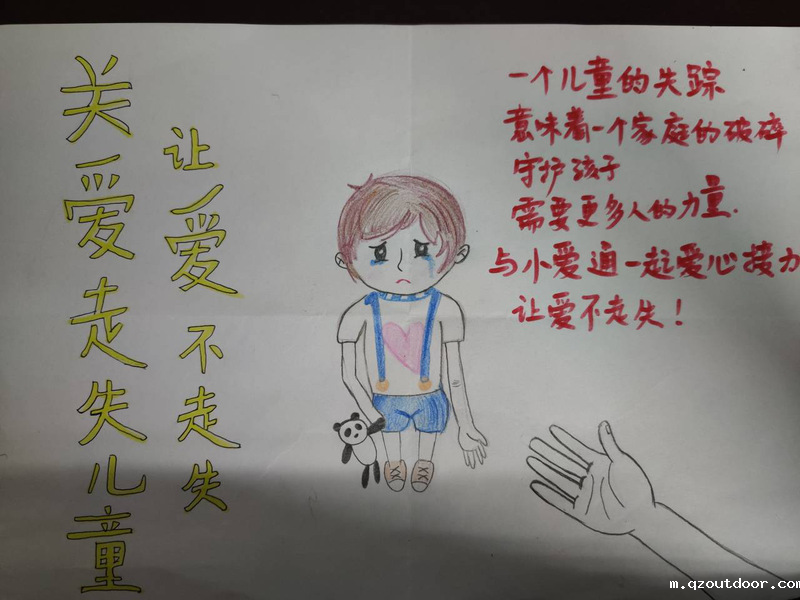 关爱走失儿童
让爱不走失
一个儿童的失踪
意味着一个家庭的破碎
守护孩子
需要更多人的力量.
与小爱通一起爱心接力
让爱不走失!
m.qzoutdoor.com